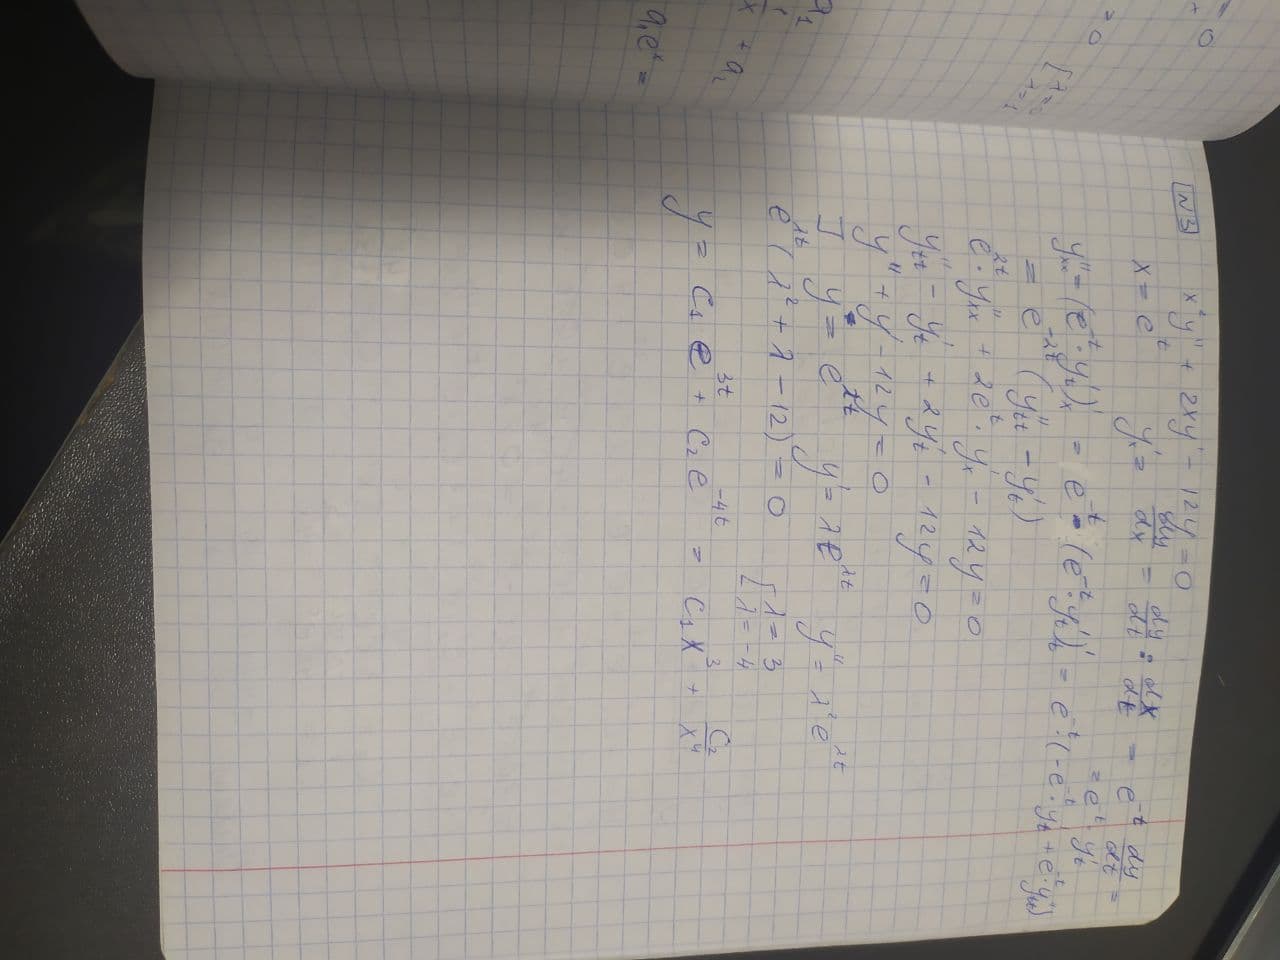 = 0
+
= 0
[λ=0
λ=1
a₁
1/x + a₂
a₁eˣ =
N3 x²y'' + 2xy' - 12y = 0
x = eᵗ y'ₓ = dy/dx = dy/dt : dx/dt = e⁻ᵗ dy/dt =
= e⁻ᵗ · y'ₜ
y''ₓₓ = (e⁻ᵗ · y'ₜ)'ₓ = e⁻ᵗ · (e⁻ᵗ · y'ₜ)'ₜ = e⁻ᵗ · (-e⁻ᵗ · yₜ + e⁻ᵗ · y''ₜₜ)
= e⁻²ᵗ (y''ₜₜ - y'ₜ)
e²ᵗ · y''ₓₓ + 2eᵗ · y'ₓ - 12y = 0
y''ₜₜ - y'ₜ + 2y'ₜ - 12y = 0
y'' + y' - 12y = 0
] y = e^λt y' = λe^λt y'' = λ²e^λt
e^λt (λ² + λ - 12) = 0 [λ = 3
λ = -4
y = C₁e³ᵗ + C₂e⁻⁴ᵗ = C₁x³ + C₂/x⁴